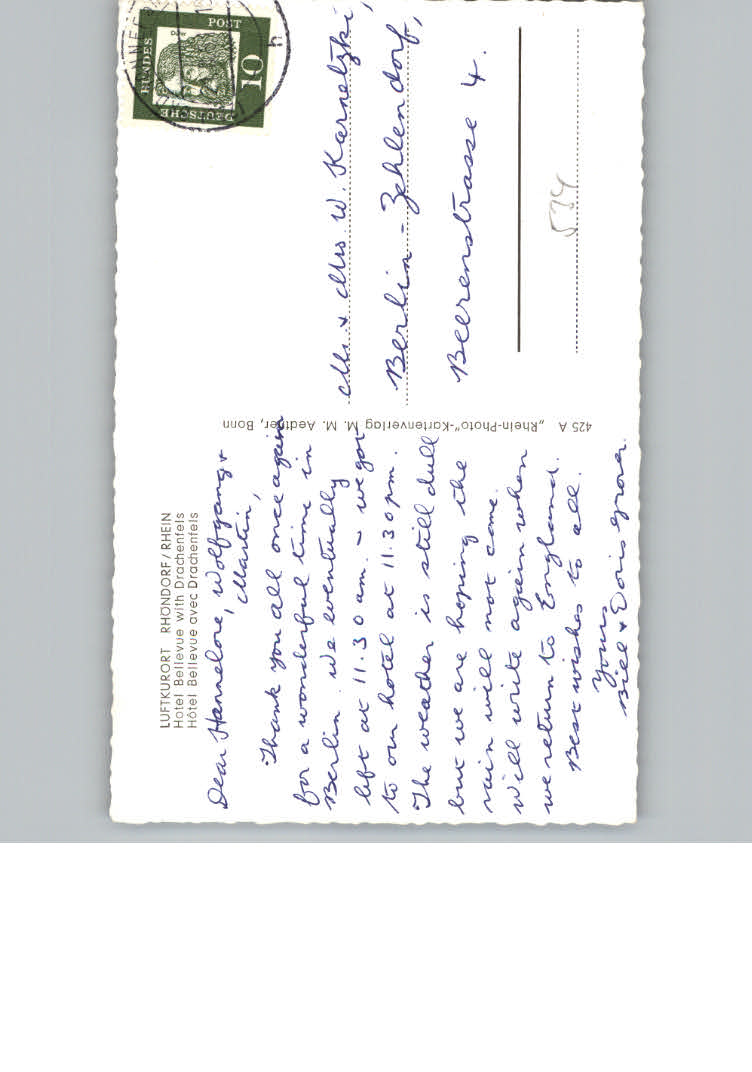 LUFTKURORT RHÖNDORF/RHEIN
Hotel Bellevue with Drachenfels
Hôtel Bellevue avec Drachenfels
Dear Hannelore, Wolfgang +
Martin,
Thank you all once again
for a wonderful time in
Berlin. We eventually
left at 11.30 am. – we got
to our hotel at 11.30 pm.
The weather is still dull
but we are hoping the
rain will not come.
Will write again when
we return to England.
Best wishes to all.
Yours
Bill + Doris
425 A „Rhein-Photo"-Kartenverlag M. M. Aedtner, Bonn
DEUTSCHE
BUNDES
POST
10
h
Mr. + Mrs W. Karnetzki,
Berlin - Zehlendorf,
Beerenstrasse 4.
534